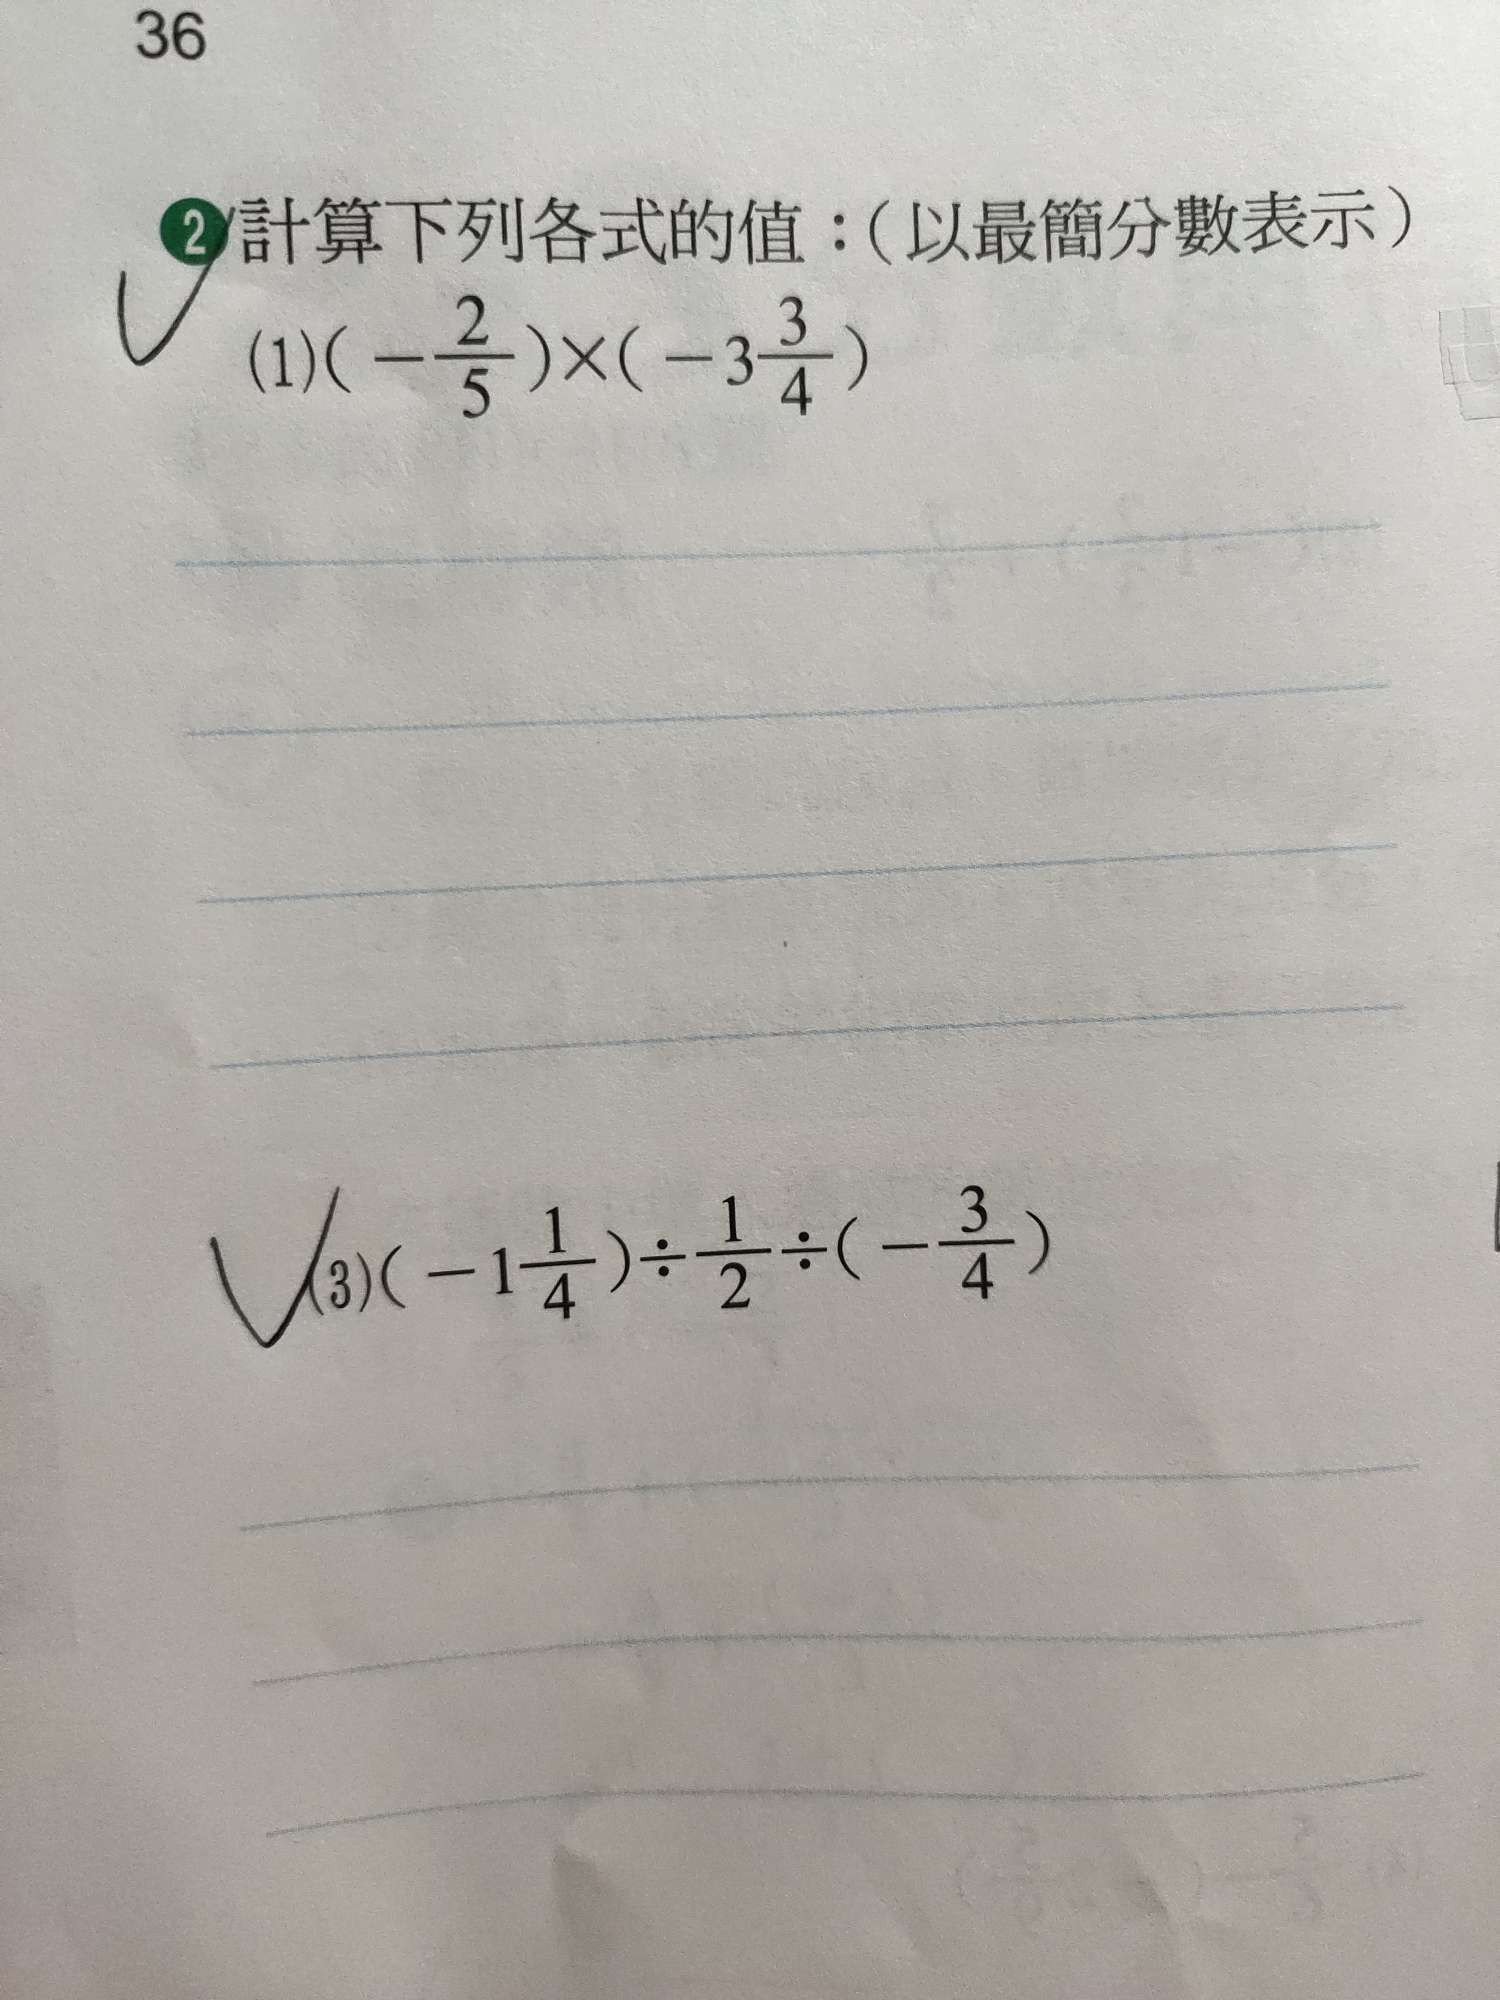 36
2 計算下列各式的值：(以最簡分數表示)
(1)(-2/5)×(-3 3/4)
(3)(-1 1/4)÷1/2÷(-3/4)